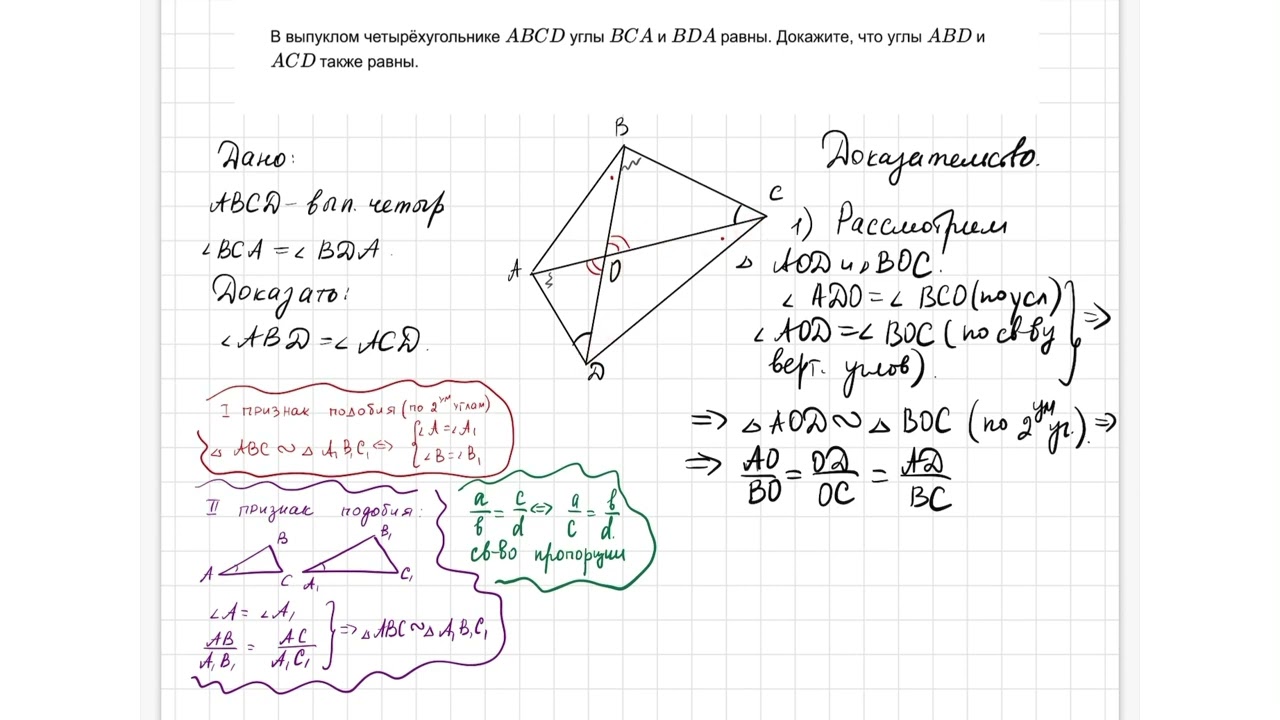 В выпуклом четырёхугольнике ABCD углы BCA и BDA равны. Докажите, что углы ABD и
ACD также равны.
Дано:
ABCD – вып. четыр
∠BCA = ∠BDA.
Доказать:
∠ABD = ∠ACD.
B
C
A
O
D
Доказательство.
1) Рассмотрим
△ AOD и △ BOC.
∠ ADO = ∠ BCO (по усл)
∠ AOD = ∠ BOC (по св-ву
верт. углов).
} =>
=> △ AOD ~ △ BOC (по 2ум уг.) =>
=> AO/BO = OD/OC = AD/BC
I признак подобия (по 2ум углам)
△ ABC ~ △ A₁B₁C₁ <=> { ∠A = ∠A₁
∠B = ∠B₁
II признак подобия:
A B C A₁ B₁ C₁
∠A = ∠A₁
AB/A₁B₁ = AC/A₁C₁
} => △ABC ~ △A₁B₁C₁
a/b = c/d <=> a/c = b/d.
св-во пропорции